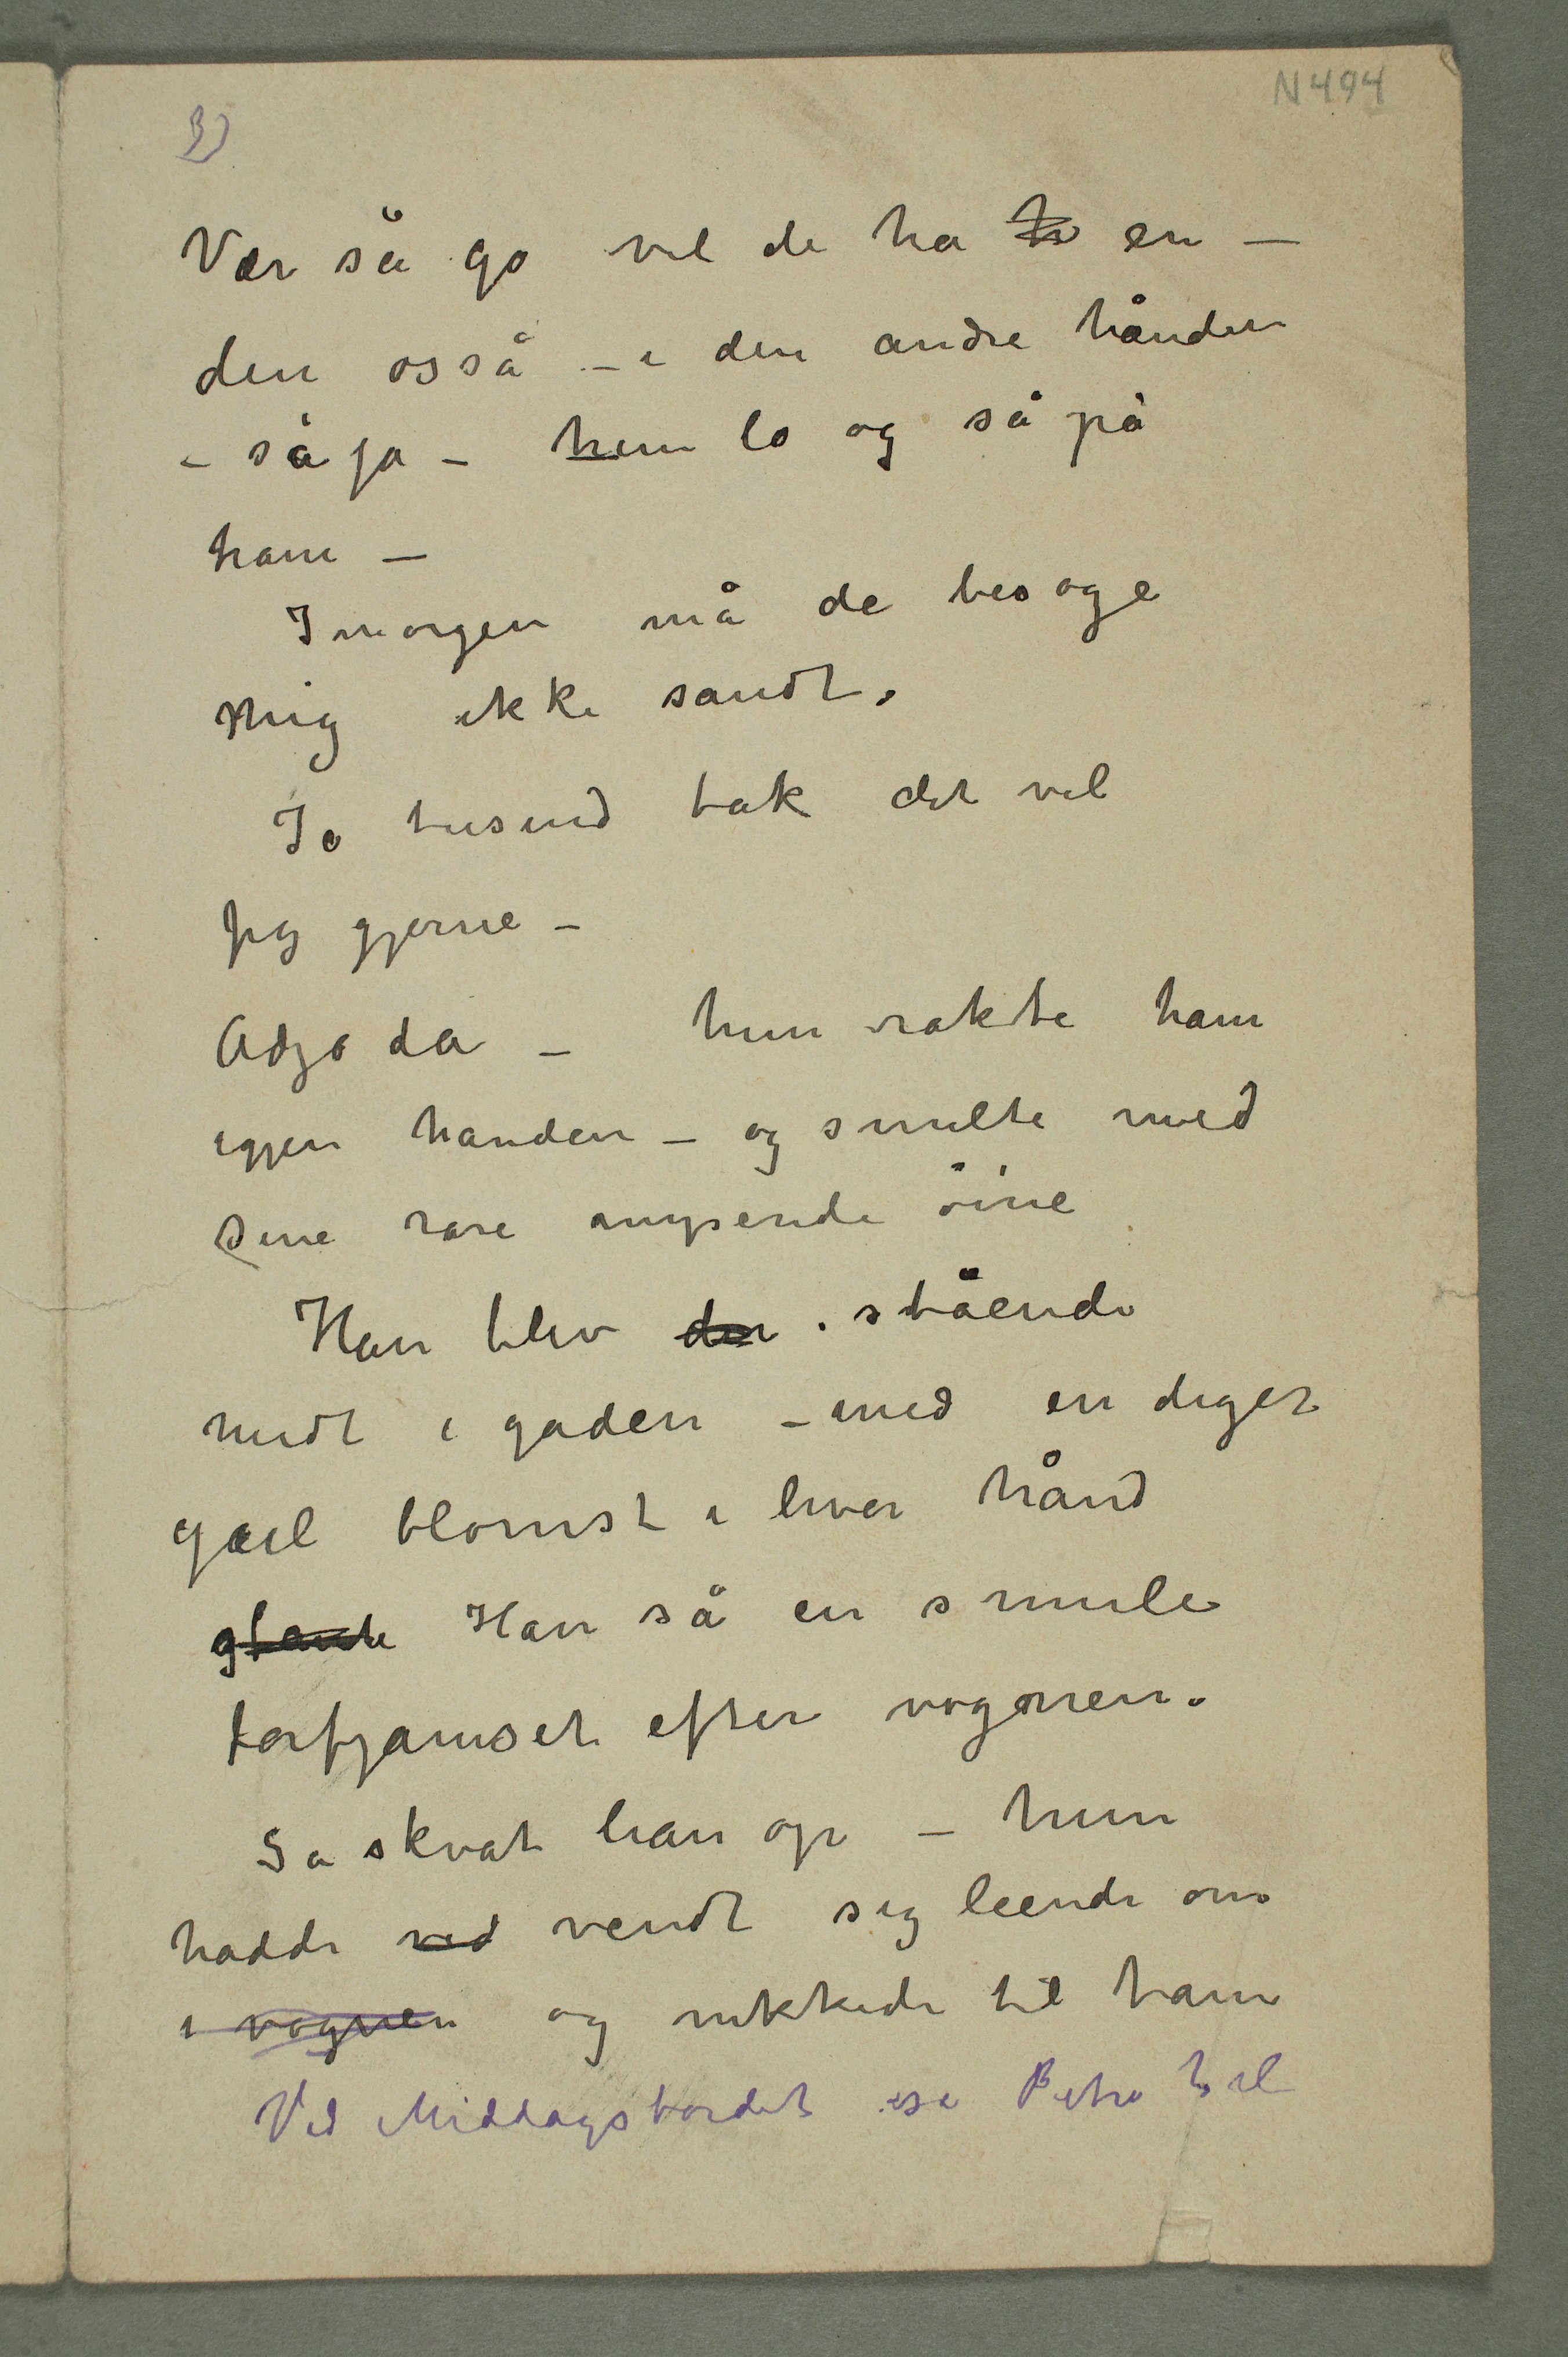 N 494
3)
Vær så go vil de ha to en –
den osså – i den andre hånden
– så ja – hun lo og så på
ham –
Imorgen må de besøge
mig ikke sandt.
Ja tusind tak det vil
jeg gjerne –
Adjø da – hun rakte ham
igjen handen – og smilte med
sine rare mysende öine
Han blev den stående
midt i gaden – med en diger
gul blomst i hver hånd
glante Han så en smule
forfjamset efter vognen.
Sa skvat han op – hun
hadde ved vendt sig leende om
i vognen og nikkede til ham
Ved Middagsbordet sa Petra til